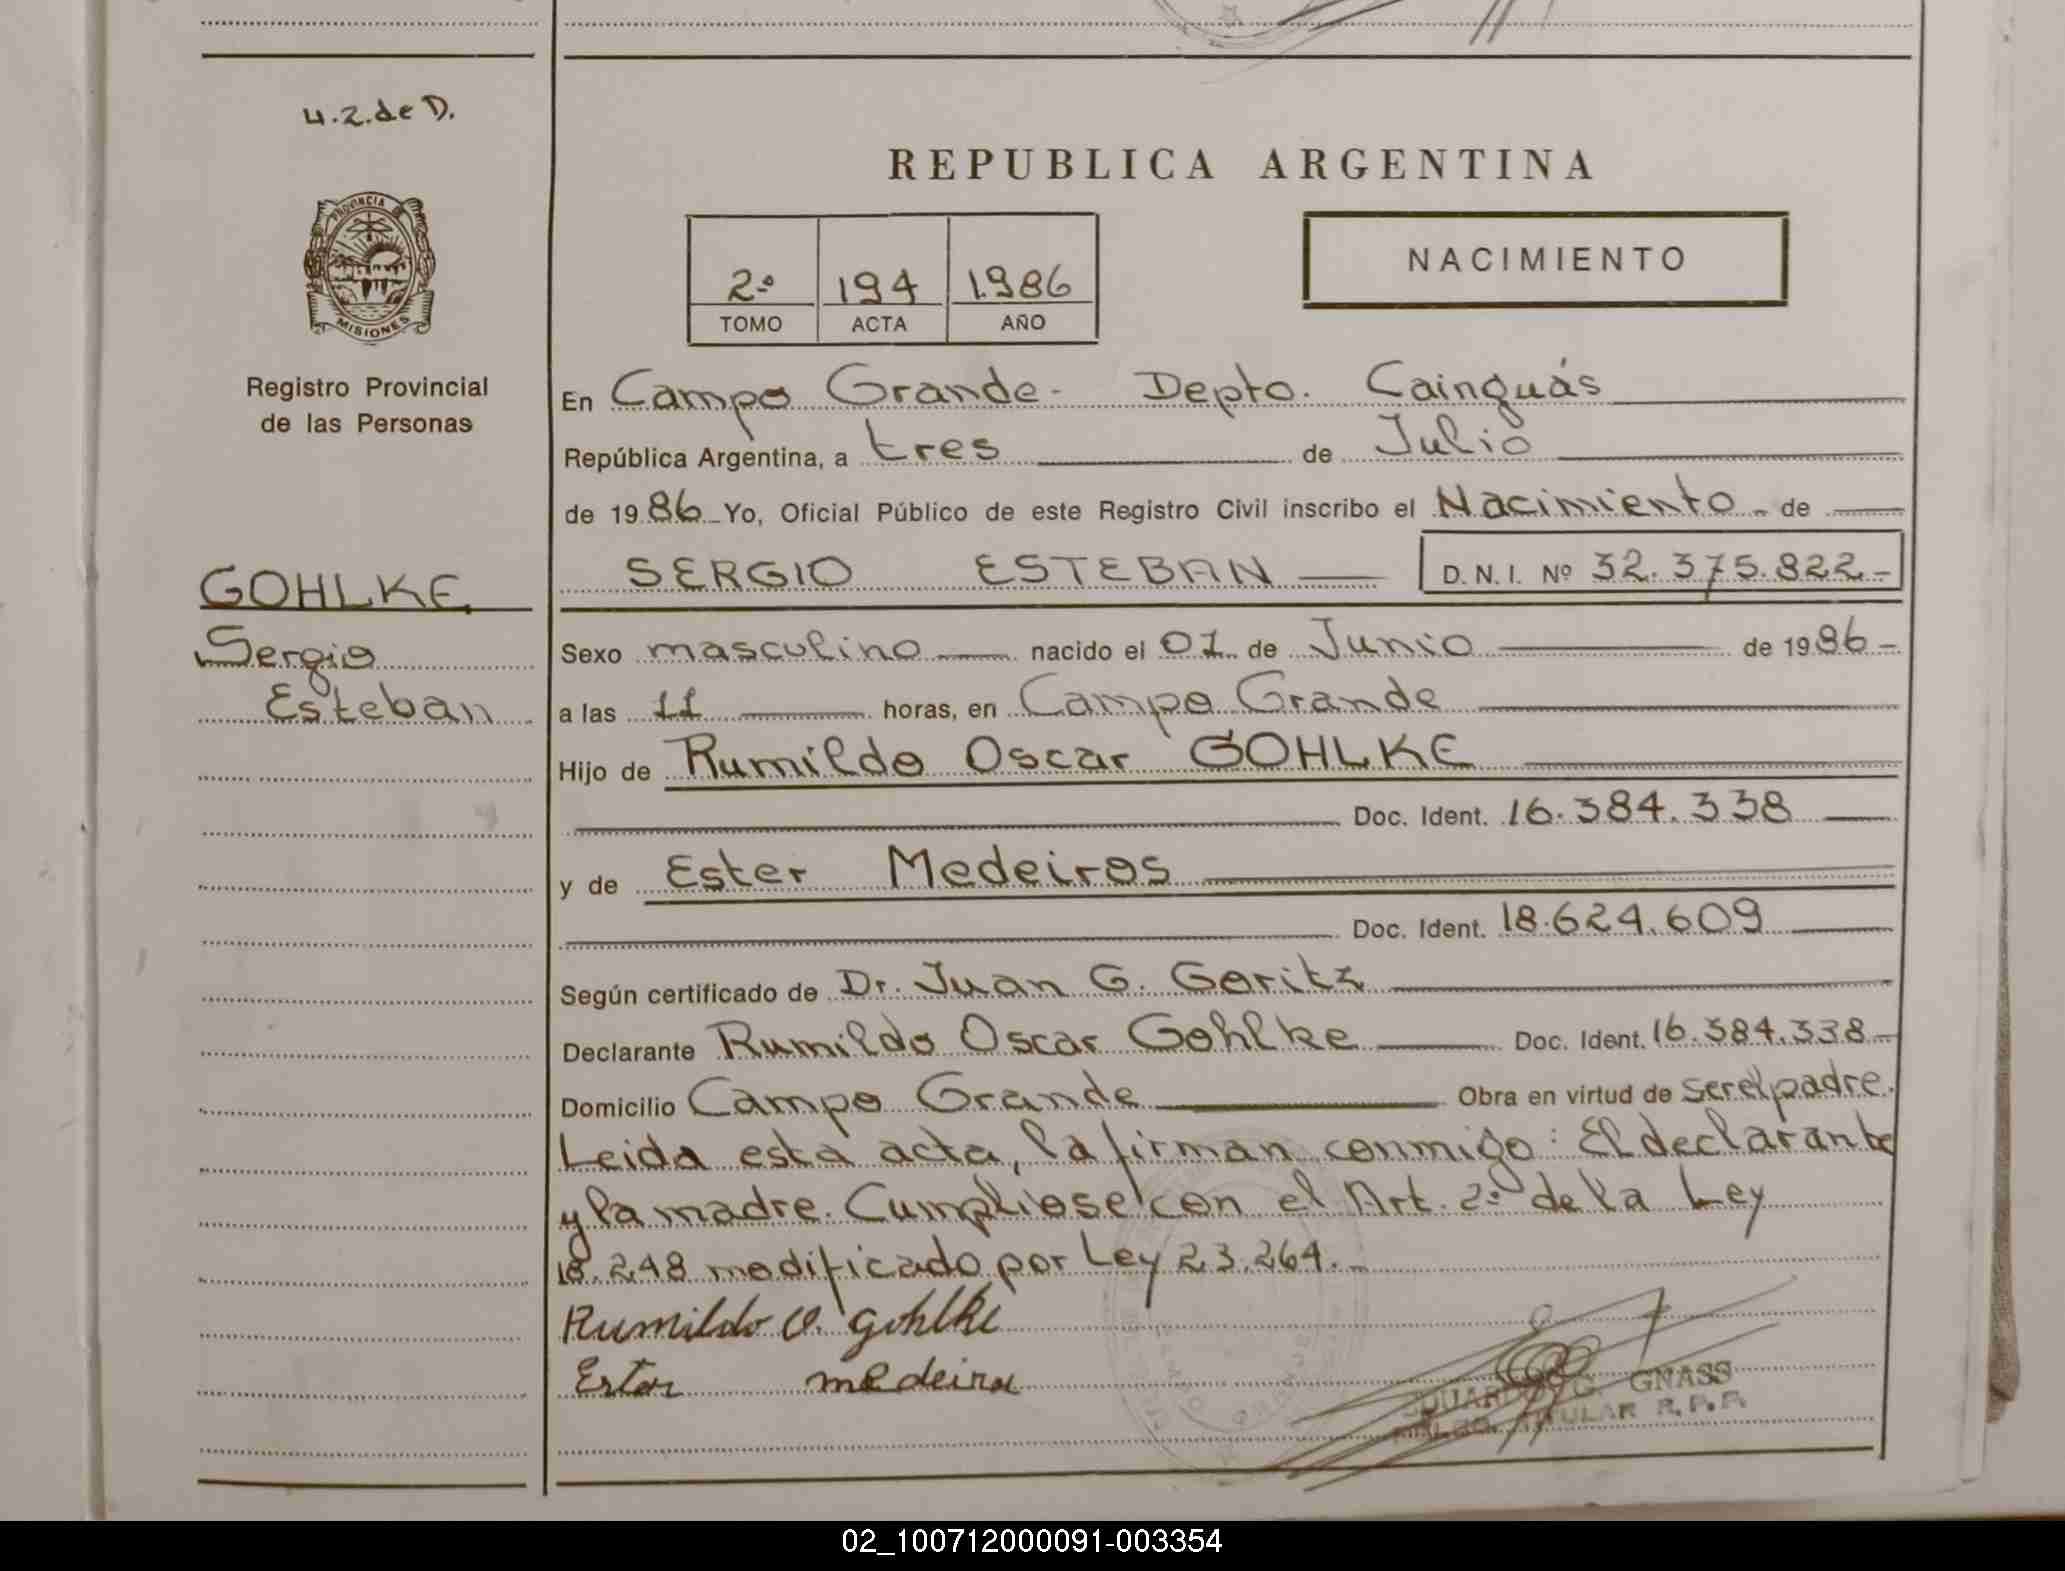 4.2.de D.
REPUBLICA ARGENTINA
NACIMIENTO
2º 194 1.986
TOMO ACTA AÑO
PROVINCIA DE
MISIONES
Registro Provincial
de las Personas
GOHLKE
Sergio
Esteban
En Campo Grande- Depto. Cainguás
República Argentina, a tres de Julio
de 1986 Yo, Oficial Público de este Registro Civil inscribo el Nacimiento de
SERGIO ESTEBAN D. N. I. Nº 32.375.822-
Sexo masculino nacido el 01 de Junio de 1986-
a las 11 horas, en Campo Grande
Hijo de Rumildo Oscar GOHLKE
Doc. Ident. 16.384.338
y de Ester Medeiros
Doc. Ident. 18.624.609
Según certificado de Dr. Juan G. Goritz
Declarante Rumildo Oscar Gohlke Doc. Ident. 16.384.338-
Domicilio Campo Grande Obra en virtud de ser el padre.
Leida esta acta, la firman conmigo: El declarante
y la madre. Cumpliose con el Art. 2º de la Ley
18.248 modificado por Ley 23.264.-
Rumildo O. gohlke
Ester medeira
G. GNASS
TITULAR R.P.P.
02_100712000091-003354